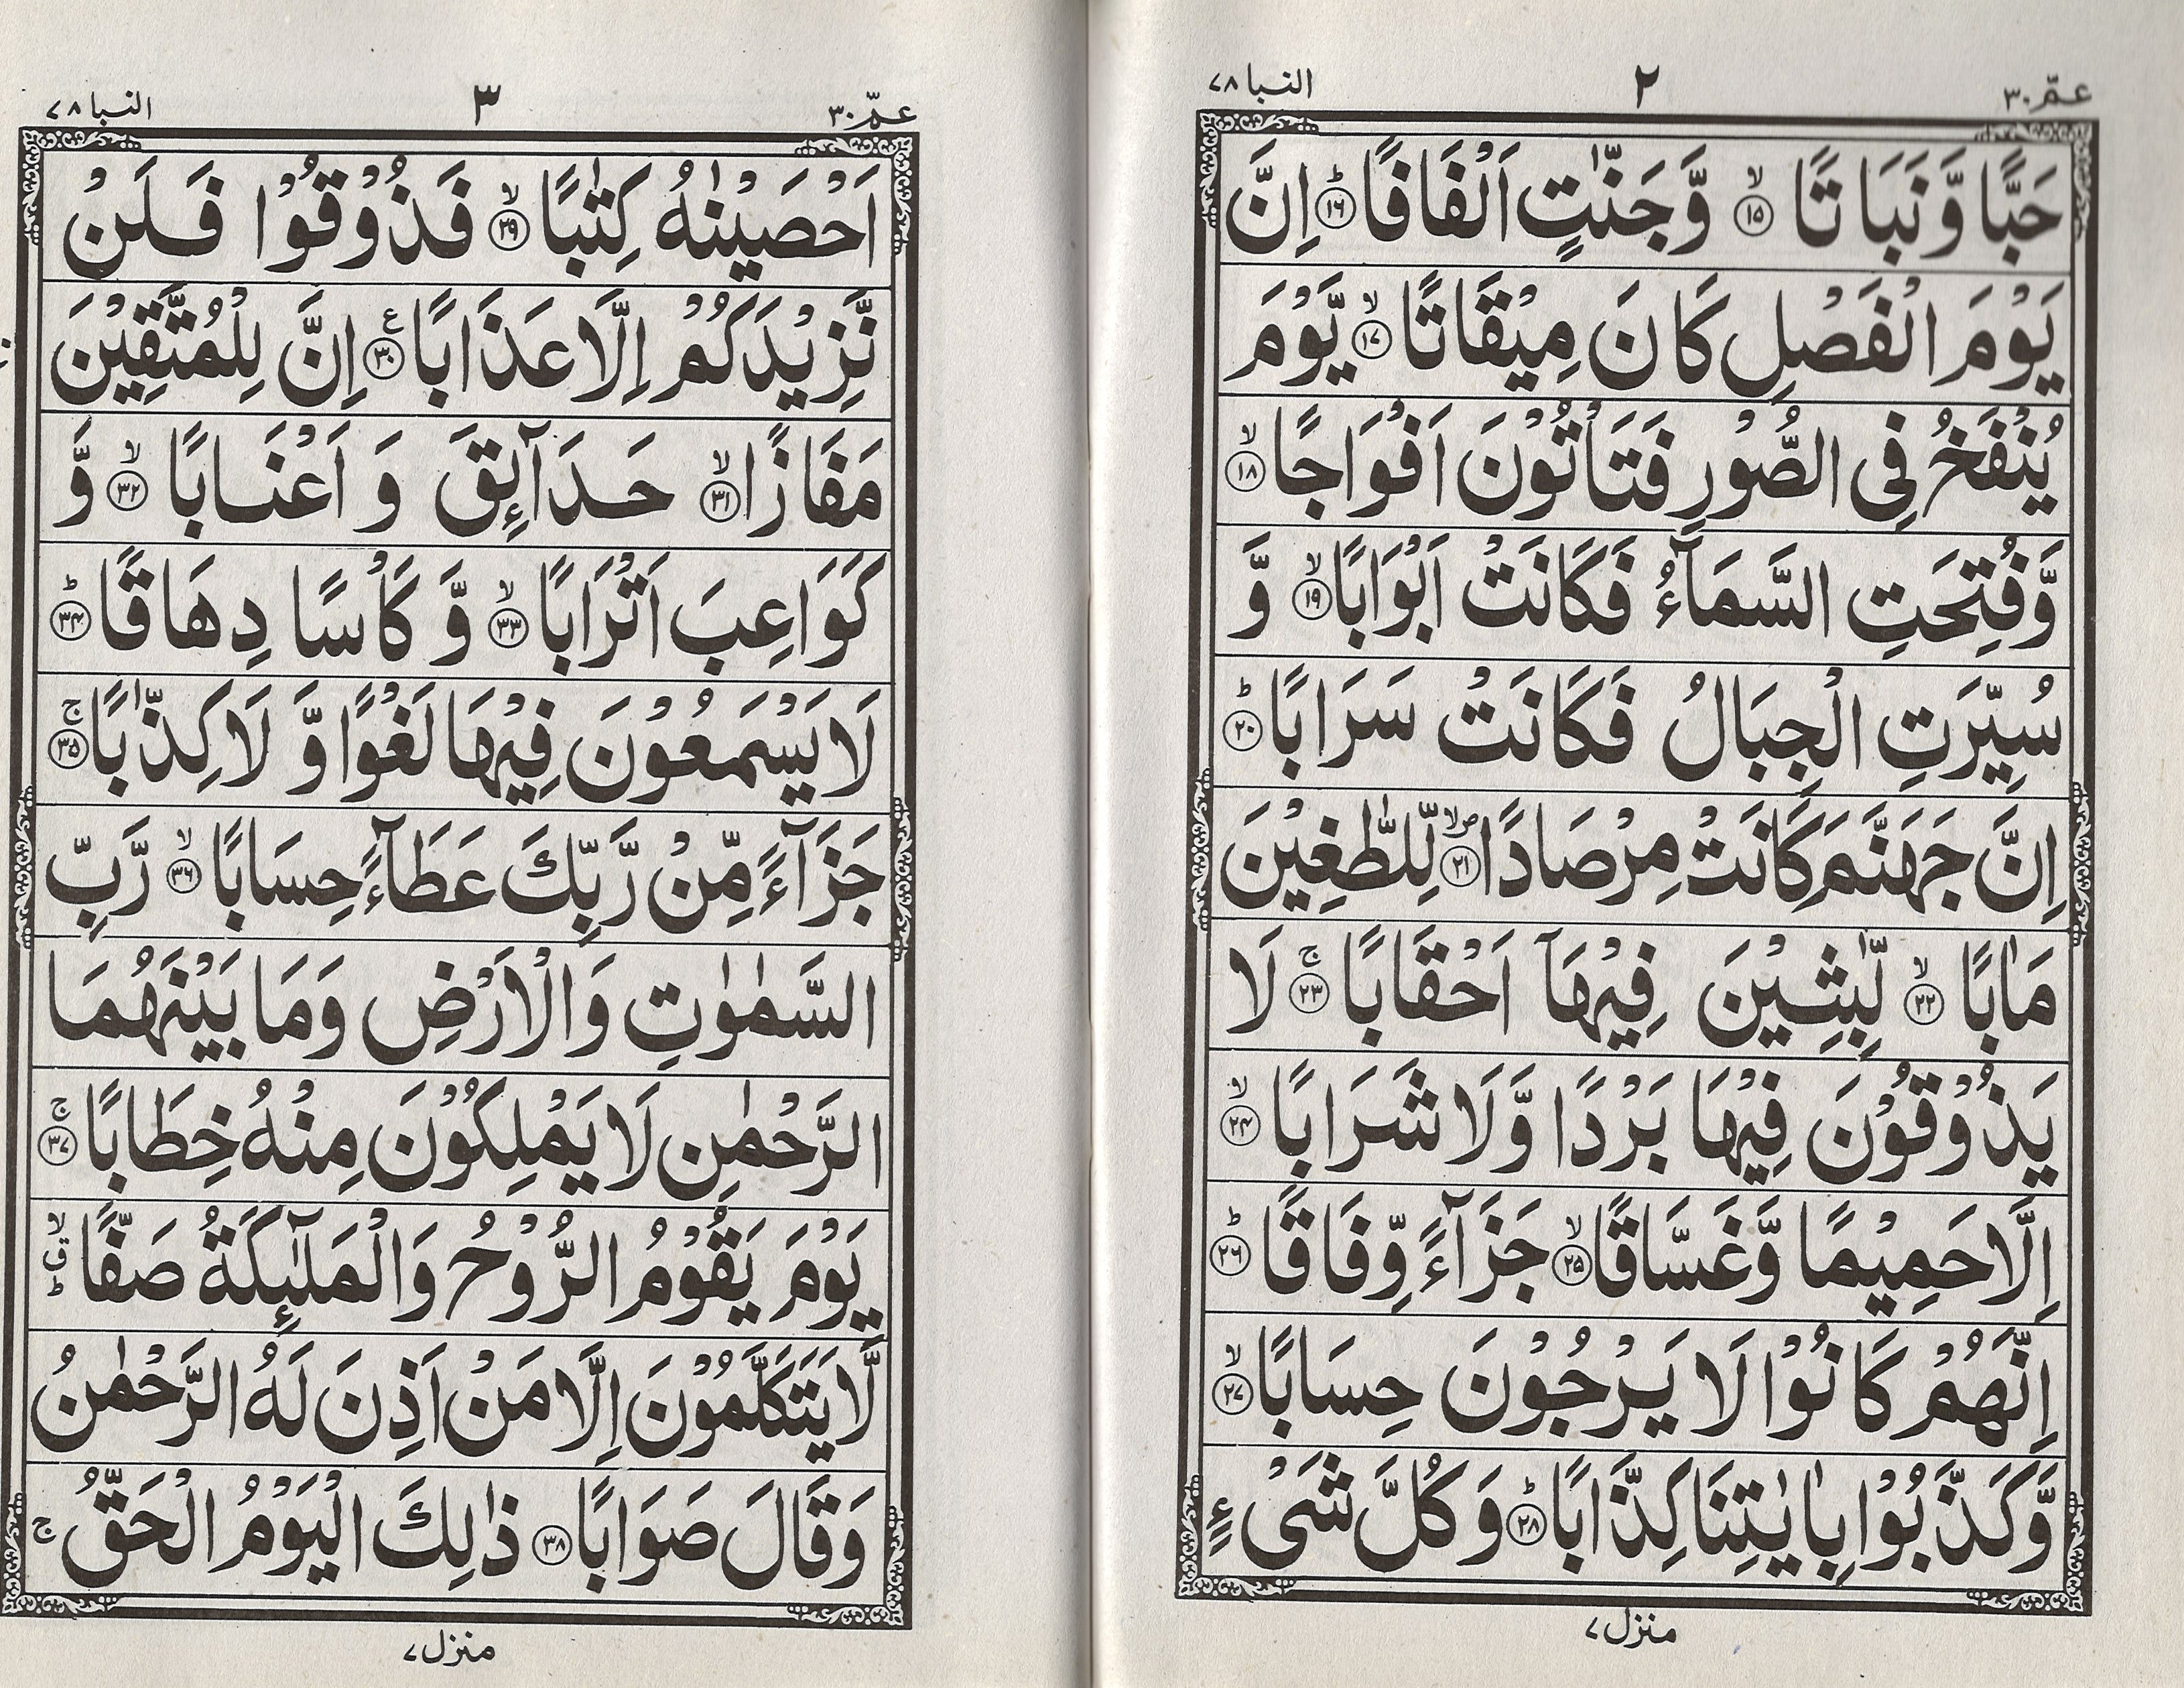 عمّ ٣٠
٢
النبا ٧٨
حَبًّا وَّنَبَاتًا ۙ﴿۱۵﴾ وَّجَنّٰتٍ اَلْفَافًا ؕ﴿۱۶﴾ اِنَّ
يَوْمَ الْفَصْلِ كَانَ مِيْقَاتًا ۙ﴿۱۷﴾ يَّوْمَ
يُنْفَخُ فِى الصُّوْرِ فَتَاْتُوْنَ اَفْوَاجًا ۙ﴿۱۸﴾
وَّفُتِحَتِ السَّمَآءُ فَكَانَتْ اَبْوَابًا ۙ﴿۱۹﴾ وَّ
سُيِّرَتِ الْجِبَالُ فَكَانَتْ سَرَابًا ؕ﴿۲۰﴾
اِنَّ جَهَنَّمَ كَانَتْ مِرْصَادًا ۪ۙ﴿۲۱﴾ لِّلطّٰغِيْنَ
مَاٰبًا ۙ﴿۲۲﴾ لّٰبِثِيْنَ فِيْهَاۤ اَحْقَابًا ۚ﴿۲۳﴾ لَا
يَذُوْقُوْنَ فِيْهَا بَرْدًا وَّلَا شَرَابًا ۙ﴿۲۴﴾
اِلَّا حَمِيْمًا وَّغَسَّاقًا ۙ﴿۲۵﴾ جَزَآءً وِّفَاقًا ؕ﴿۲۶﴾
اِنَّهُمْ كَانُوْا لَا يَرْجُوْنَ حِسَابًا ۙ﴿۲۷﴾
وَّكَذَّبُوْا بِاٰيٰتِنَا كِذَّابًا ؕ﴿۲۸﴾ وَكُلَّ شَىْءٍ
منزل ٧
عمّ ٣٠
٣
النبا ٧٨
اَحْصَيْنٰهُ كِتٰبًا ۙ﴿۲۹﴾ فَذُوْقُوْا فَلَنْ
نَّزِيْدَكُمْ اِلَّا عَذَابًا ﴿۳۰﴾ع اِنَّ لِلْمُتَّقِيْنَ
مَفَازًا ۙ﴿۳۱﴾ حَدَآئِقَ وَ اَعْنَابًا ۙ﴿۳۲﴾ وَّ
كَوَاعِبَ اَتْرَابًا ۙ﴿۳۳﴾ وَّ كَاْسًا دِهَاقًا ؕ﴿۳۴﴾
لَا يَسْمَعُوْنَ فِيْهَا لَغْوًا وَّ لَا كِذّٰبًا ۚ﴿۳۵﴾
جَزَآءً مِّنْ رَّبِّكَ عَطَآءً حِسَابًا ۙ﴿۳۶﴾ رَّبِّ
السَّمٰوٰتِ وَالْاَرْضِ وَمَا بَيْنَهُمَا
الرَّحْمٰنِ لَا يَمْلِكُوْنَ مِنْهُ خِطَابًا ۚ﴿۳۷﴾
يَوْمَ يَقُوْمُ الرُّوْحُ وَالْمَلٰٓئِكَةُ صَفًّا ۙق ؕ
لَّا يَتَكَلَّمُوْنَ اِلَّا مَنْ اَذِنَ لَهُ الرَّحْمٰنُ
وَقَالَ صَوَابًا ﴿۳۸﴾ ذٰلِكَ الْيَوْمُ الْحَقُّ ۚ
منزل ٧